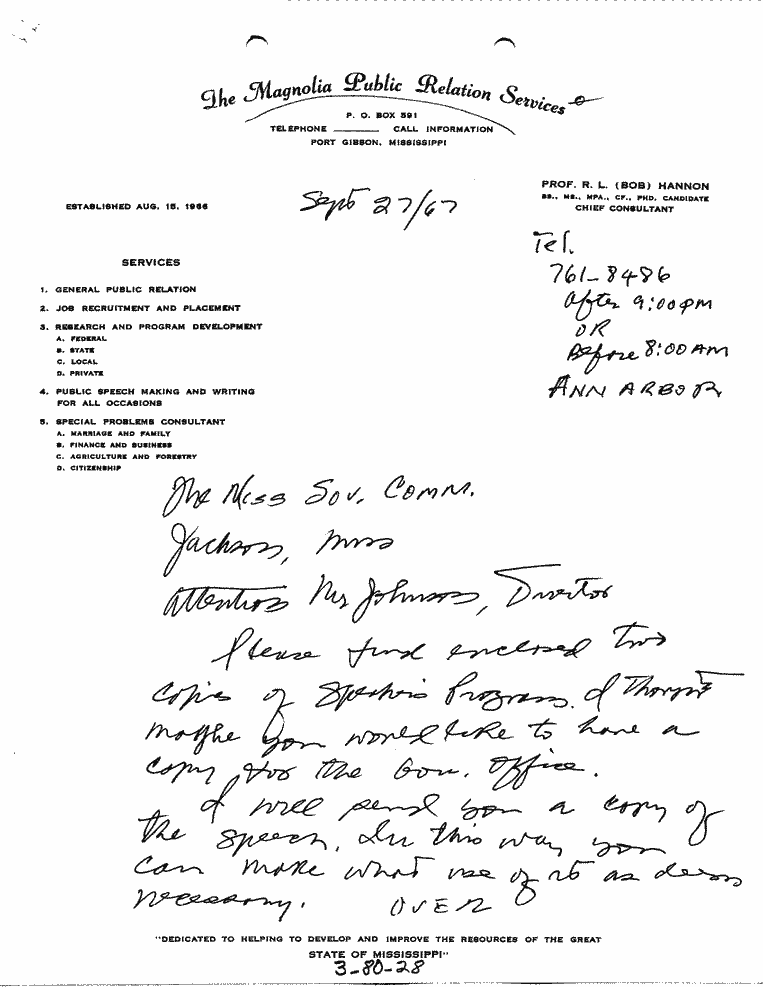 The Magnolia Public Relation Services
P. O. BOX 591
TELEPHONE ________ CALL INFORMATION
PORT GIBSON, MISSISSIPPI
PROF. R. L. (BOB) HANNON
BS., MS., MPA., CF., PHD. CANDIDATE
CHIEF CONSULTANT
ESTABLISHED AUG. 15, 1966
Sept 27/67
Tel.
761-8486
After 9:00 pm
OR
Before 8:00 AM
ANN ARBOR
SERVICES
1. GENERAL PUBLIC RELATION
2. JOB RECRUITMENT AND PLACEMENT
3. RESEARCH AND PROGRAM DEVELOPMENT
A. FEDERAL
B. STATE
C. LOCAL
D. PRIVATE
4. PUBLIC SPEECH MAKING AND WRITING
FOR ALL OCCASIONS
5. SPECIAL PROBLEMS CONSULTANT
A. MARRIAGE AND FAMILY
B. FINANCE AND BUSINESS
C. AGRICULTURE AND FORESTRY
D. CITIZENSHIP
The Miss Sov. Comm.
Jackson, Miss
Attention Mr Johnson, Director
Please find enclosed two
copies of Program. I
maybe you would like to have a
copy for the Gov. Office.
I will send you a copy of
the speech. In this way you
can make what use of it as
necessary. OVER
"DEDICATED TO HELPING TO DEVELOP AND IMPROVE THE RESOURCES OF THE GREAT
STATE OF MISSISSIPPI"
3-80-28